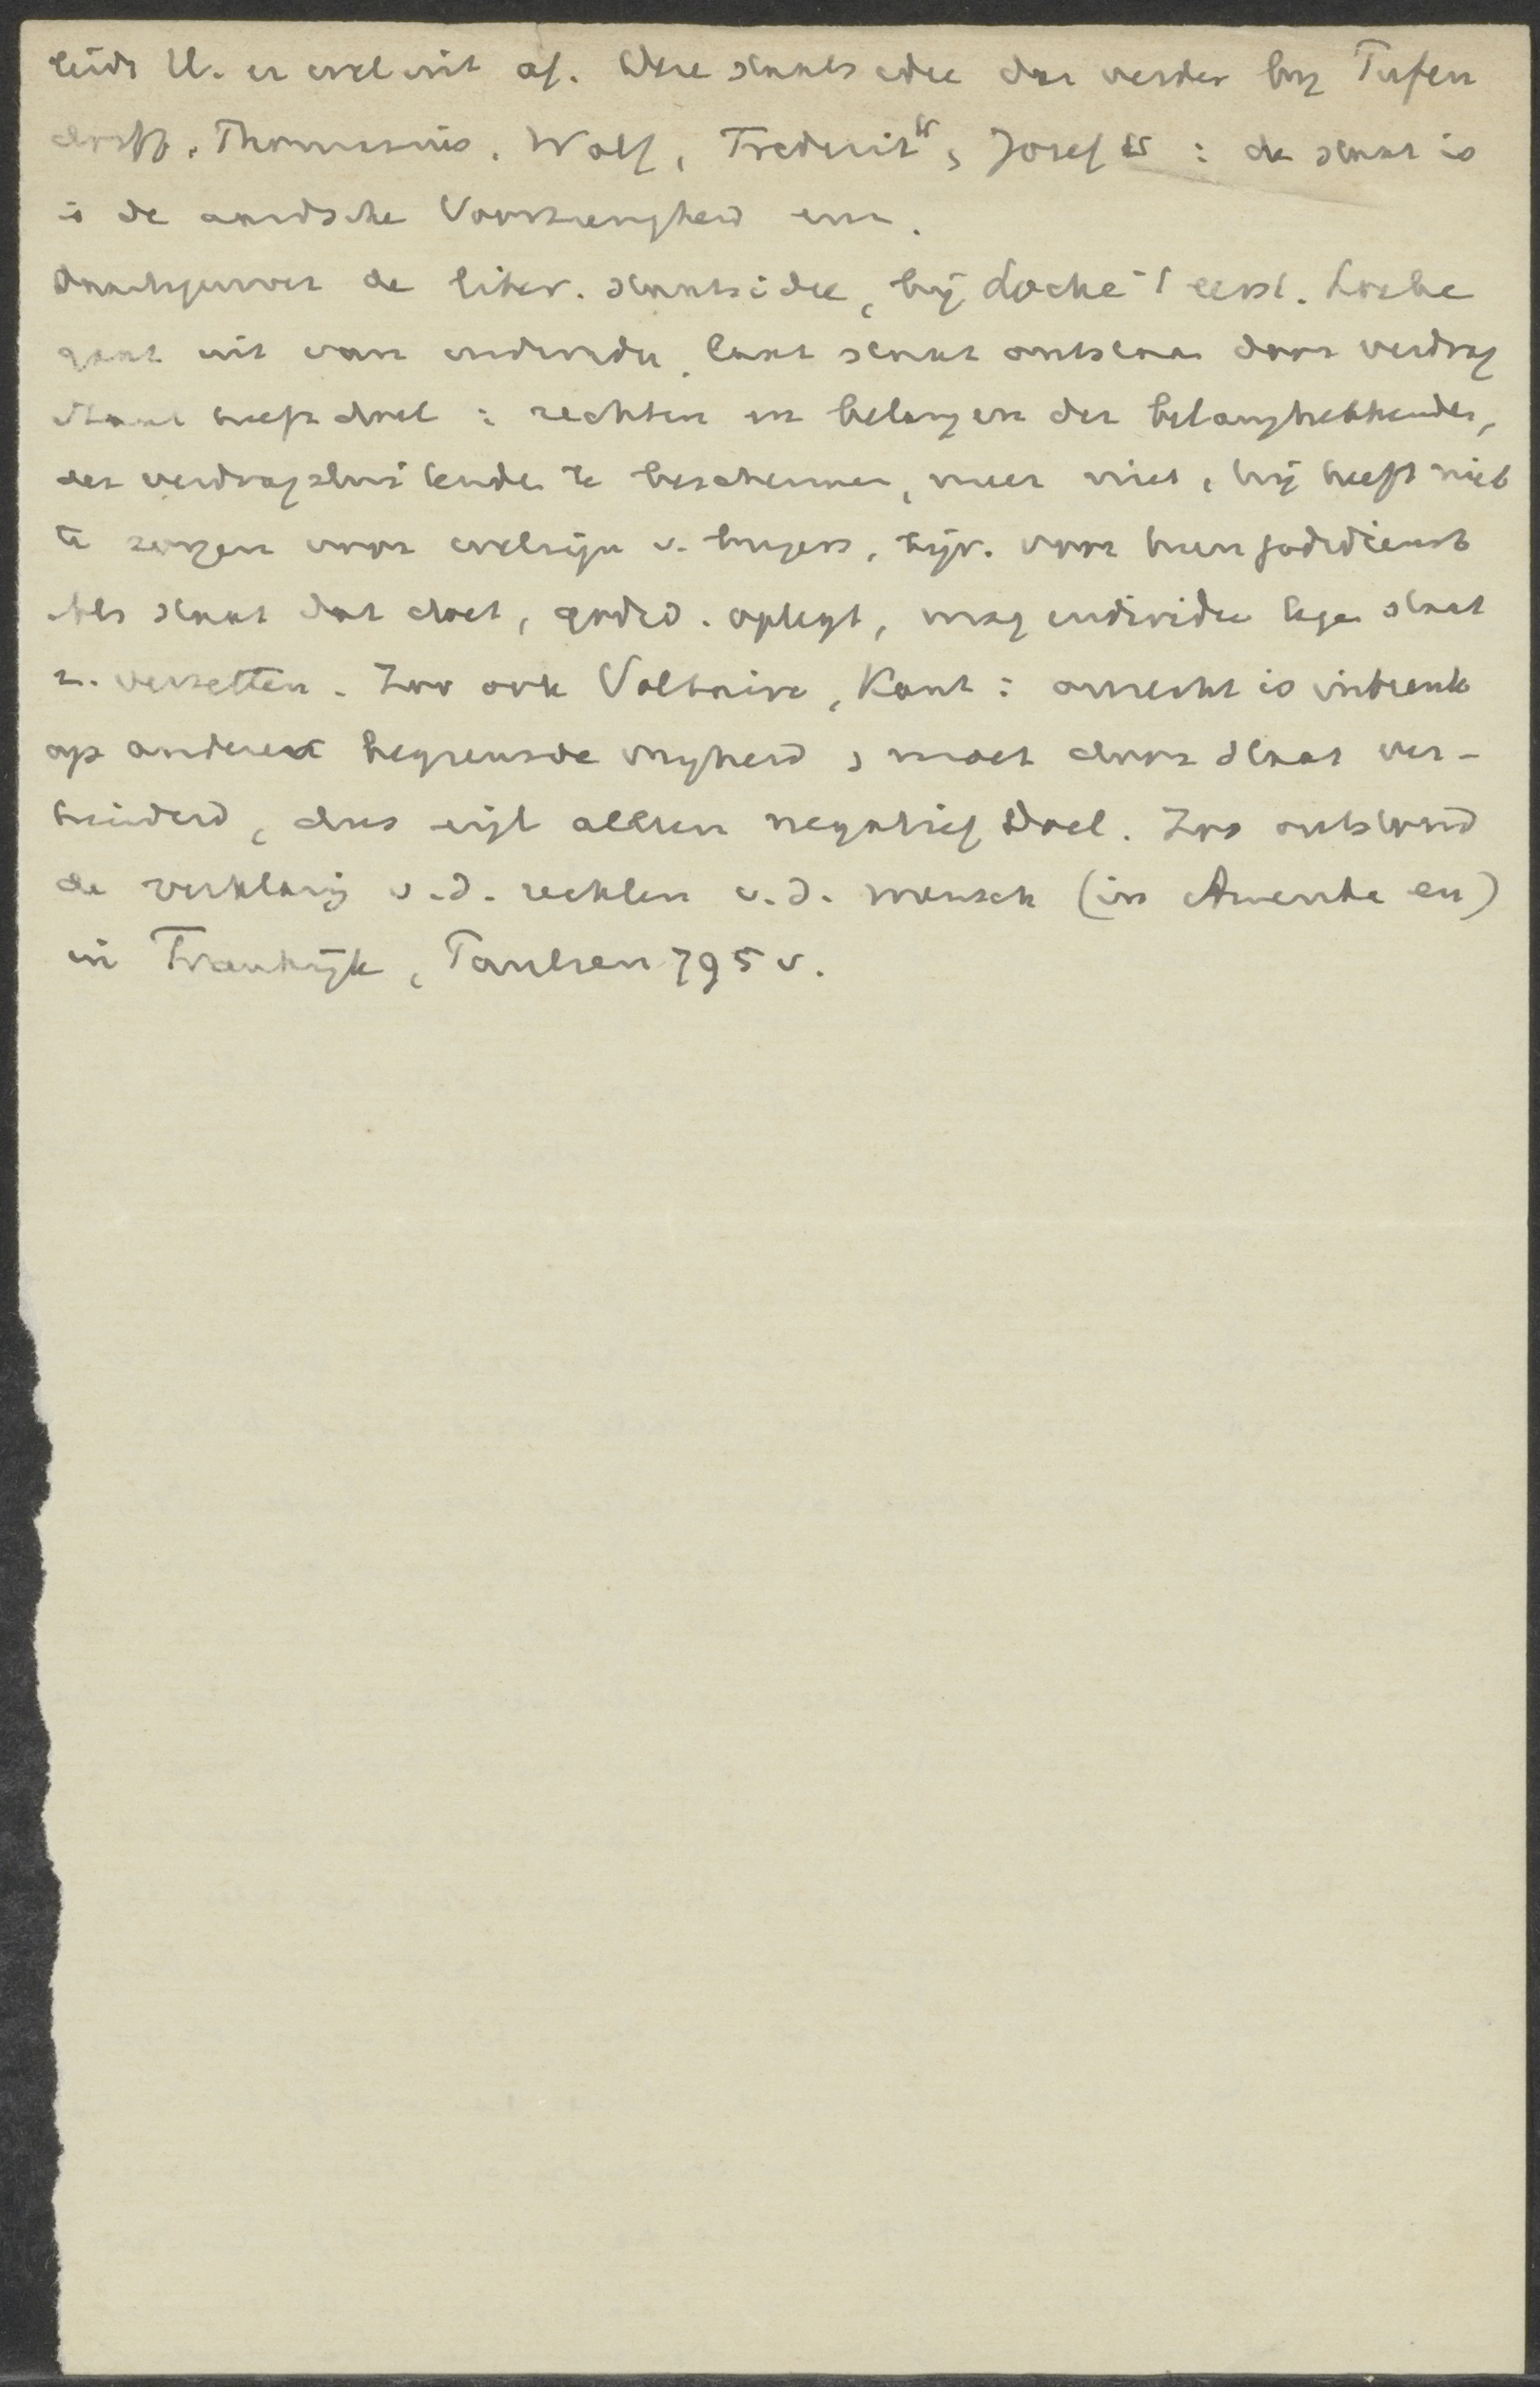 leidt U. er wel uit af. Deze staatsidee dan verder bij Pufen
dorff, Thomasius, Wolf, Frederik II, Josef II : de staat is
is de aardsche Voorzienigheid enz.
Daartegenover de liber. staatsidee, bij Locke 't eerst. Locke
gaat uit van individu, laat staat ontstaan door verdrag
staat heeft doel : rechten en belangen der belanghebbenden,
der verdragsluitenden te beschermen, meer niet, hij heeft niet
te zorgen voor welzijn v. burgers, bijv. voor hun godsdienst
Als staat dat doet, godsd. oplegt, mag individu tegen staat
z. verzetten. Zoo ook Voltaire, Kant : onrecht is inbreuk
op anderer begrensde vrijheid, moet door staat ver-
hinderd, dus eigl alleen negatief Doel. Zoo ontstond
de verklaring v.d. rechten v.d. mensch (in Amerika en)
in Frankrijk, Paulsen 795 v.